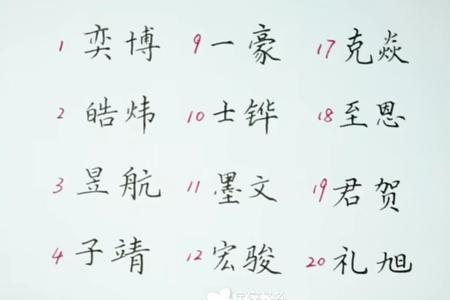 1 奕博 9 一豪 17 克焱
2 皓炜 10 士铧 18 至恩
3 昱航 11 墨文 19 君贺
4 子靖 12 宏骏 20 礼旭